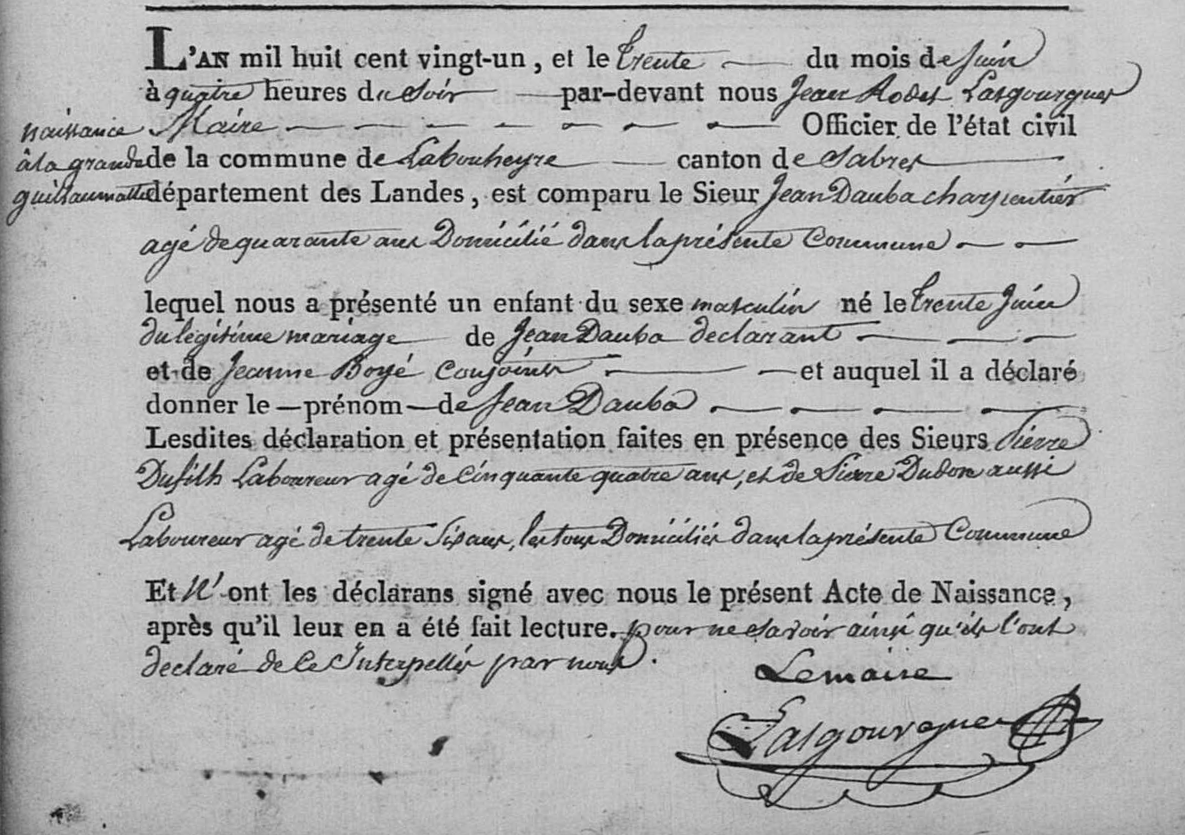 L'AN mil huit cent vingt-un, et le trente du mois de juin
à quatre heures du soir par-devant nous Jean Rodes Lasgourgues
Maire Officier de l'état civil
de la commune de Labouheyre canton de Sabres
département des Landes, est comparu le Sieur Jean Dauba charpentier
agé de quarante ans Domicilié dans la présente Commune
lequel nous a présenté un enfant du sexe masculin né le trente Juin
du légitime mariage de Jean Dauba declarant
et de Jeanne Boyé Conjoints et auquel il a déclaré
donner le prénom de Jean Dauba
Lesdites déclaration et présentation faites en présence des Sieurs Pierre
Dufilh Laboureur agé de Cinquante quatre ans, et de Pierre Dudon aussi
Laboureur agé de trente Six ans, les tous Domiciliés dans la présente Commune
Et N'ont les déclarans signé avec nous le présent Acte de Naissance,
après qu'il leur en a été fait lecture. pour ne savoir ainsi qu'ils l'ont
declaré de Ce Interpellés par nous.
Lemaire
Lasgourgues
naissance
à la grande
guillaumatte